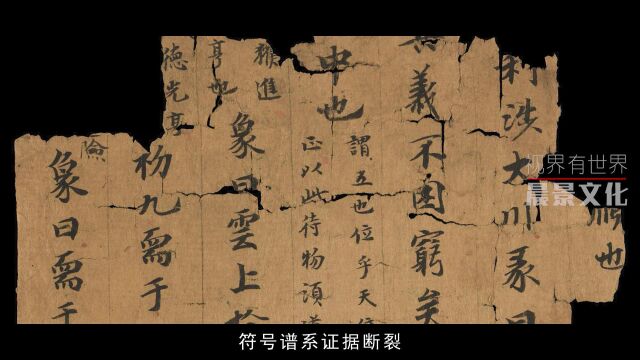 也
利涉大川彖曰
義不困窮矣
中也
謂五也位乎天位
正以此待物須道
進
亨也
象曰雲上於
德光亨
初九需于
象曰需于
视界有世界
晨景文化
符号谱系证据断裂